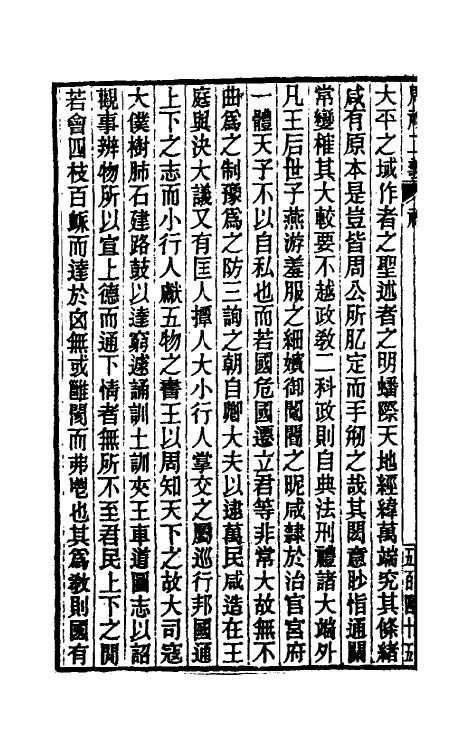 大平之域作者之聖述者之明蟠際天地經緯萬端究其條緒
咸有原本是豈皆周公所肊定而手刱之哉其閎意眇恉通關
常變榷其大較要不越政敎二科政則自典法刑禮諸大端外
凡王后世子燕游羞服之細嬪御閽閹之昵咸隷於治官宮府
一體天子不以自私也而若國危國遷立君等非常大故無不
曲爲之制豫爲之防三詢之朝自卿大夫以逮萬民咸造在王
庭與決大議又有匡人撢人大小行人掌交之屬巡行邦國通
上下之志而小行人獻五物之書王以周知天下之故大司寇
大僕樹肺石建路鼓以達窮遽誦訓土訓夾王車道圖志以詔
觀事辨物所以宣上德而通下情者無所不至君民上下之閒
若會四枝百䘑而達於囟無或雝閡而弗鬯也其爲敎則國有